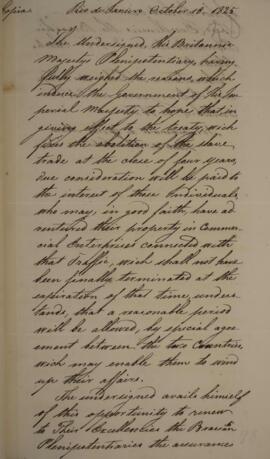 Copia
Rio de Janeiro October 18. 1825
The Undersigned, His Britannic
Majesty's Plenipotentiary, having
fully weighed the reasons, which
induce the Government of His Im-
perial Majesty to hope, that in
giving effect to the treaty, wich
fixes the abolition of the slave
trade at the close of four years,
due consideration will be paid to
the interest of those Individuals
who may, in good faith, have ad
ventured their property in Commer-
cial Enterprises connected with
that Traffic, wich shall not have
been finally terminated at the
expiration of that time, unders-
tands, that a reasonable period
will be allowed, by special agre
ement between the two Countries,
wich may enable them to wind
up their affairs.
The undersigned avails himself
of this opportunity to renew
to Their Excellencies the Brazilian
Plenipotentiaries the assurances